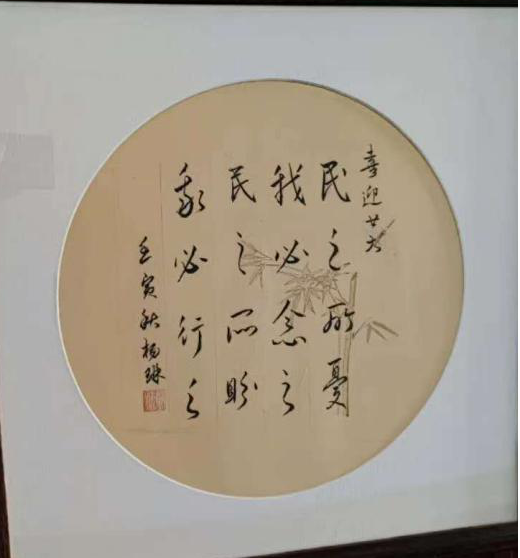 喜迎廿大
民之所憂
我必念之
民之所盼
我必行之
壬寅秋杨琳